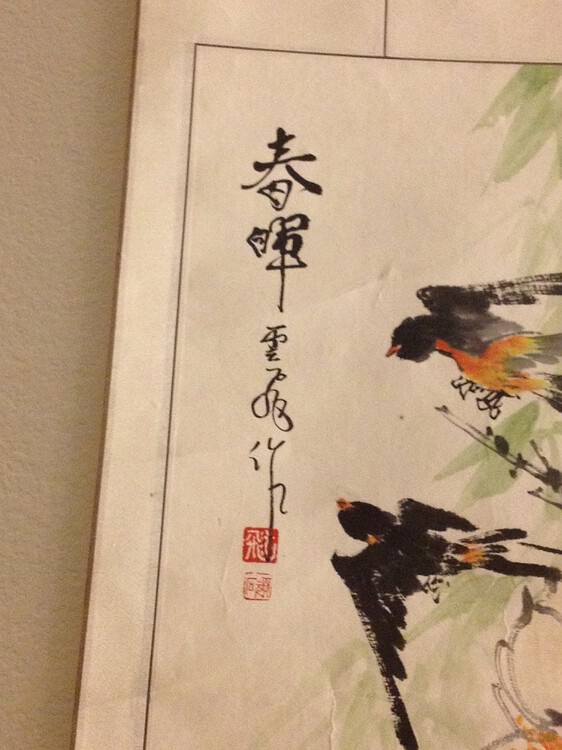 春暉
雲飛作